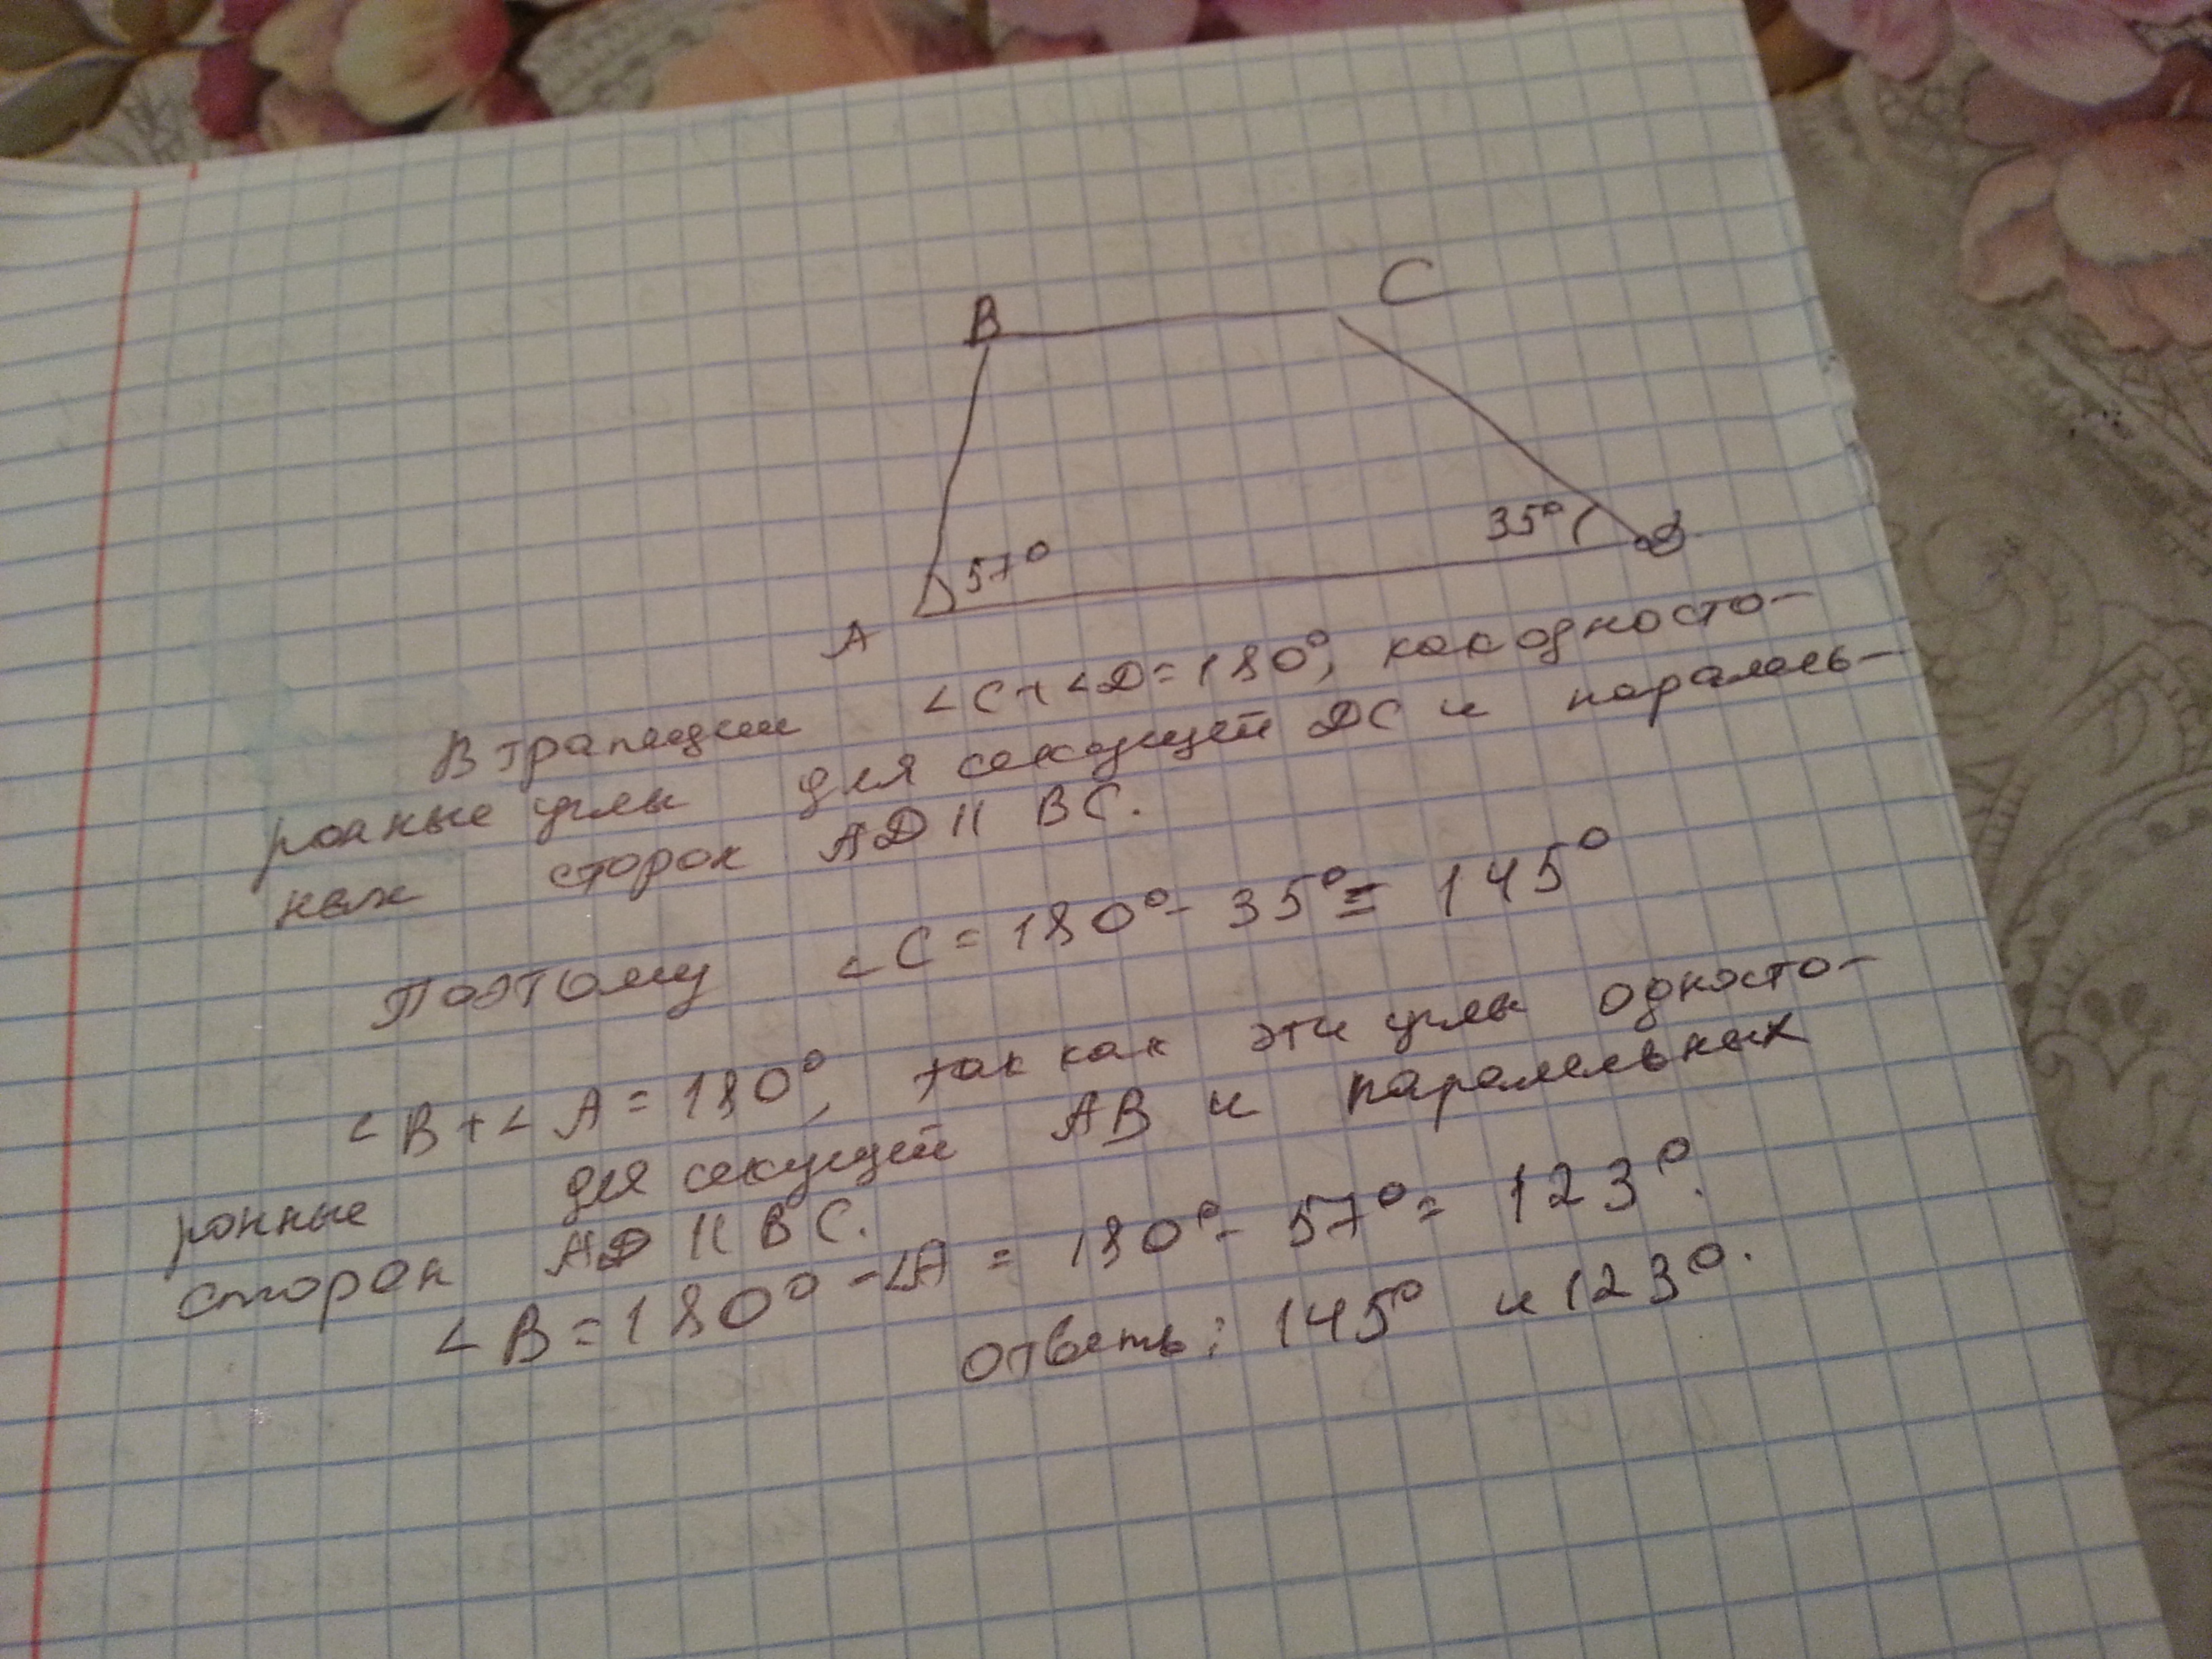 B
C
57°
35°
A
D
В трапеции ∠C+∠D=180°, как односто-
ронные углы для секущей DC и паралель-
ных сторон AD || BC.
Поэтому ∠C=180°-35°= 145°
∠B+∠A=180°, так как эти углы односто-
ронные для секущей AB и паралельных
сторон AD || BC.
∠B=180°-∠A = 180°-57°= 123°.
ответь: 145° и 123°.